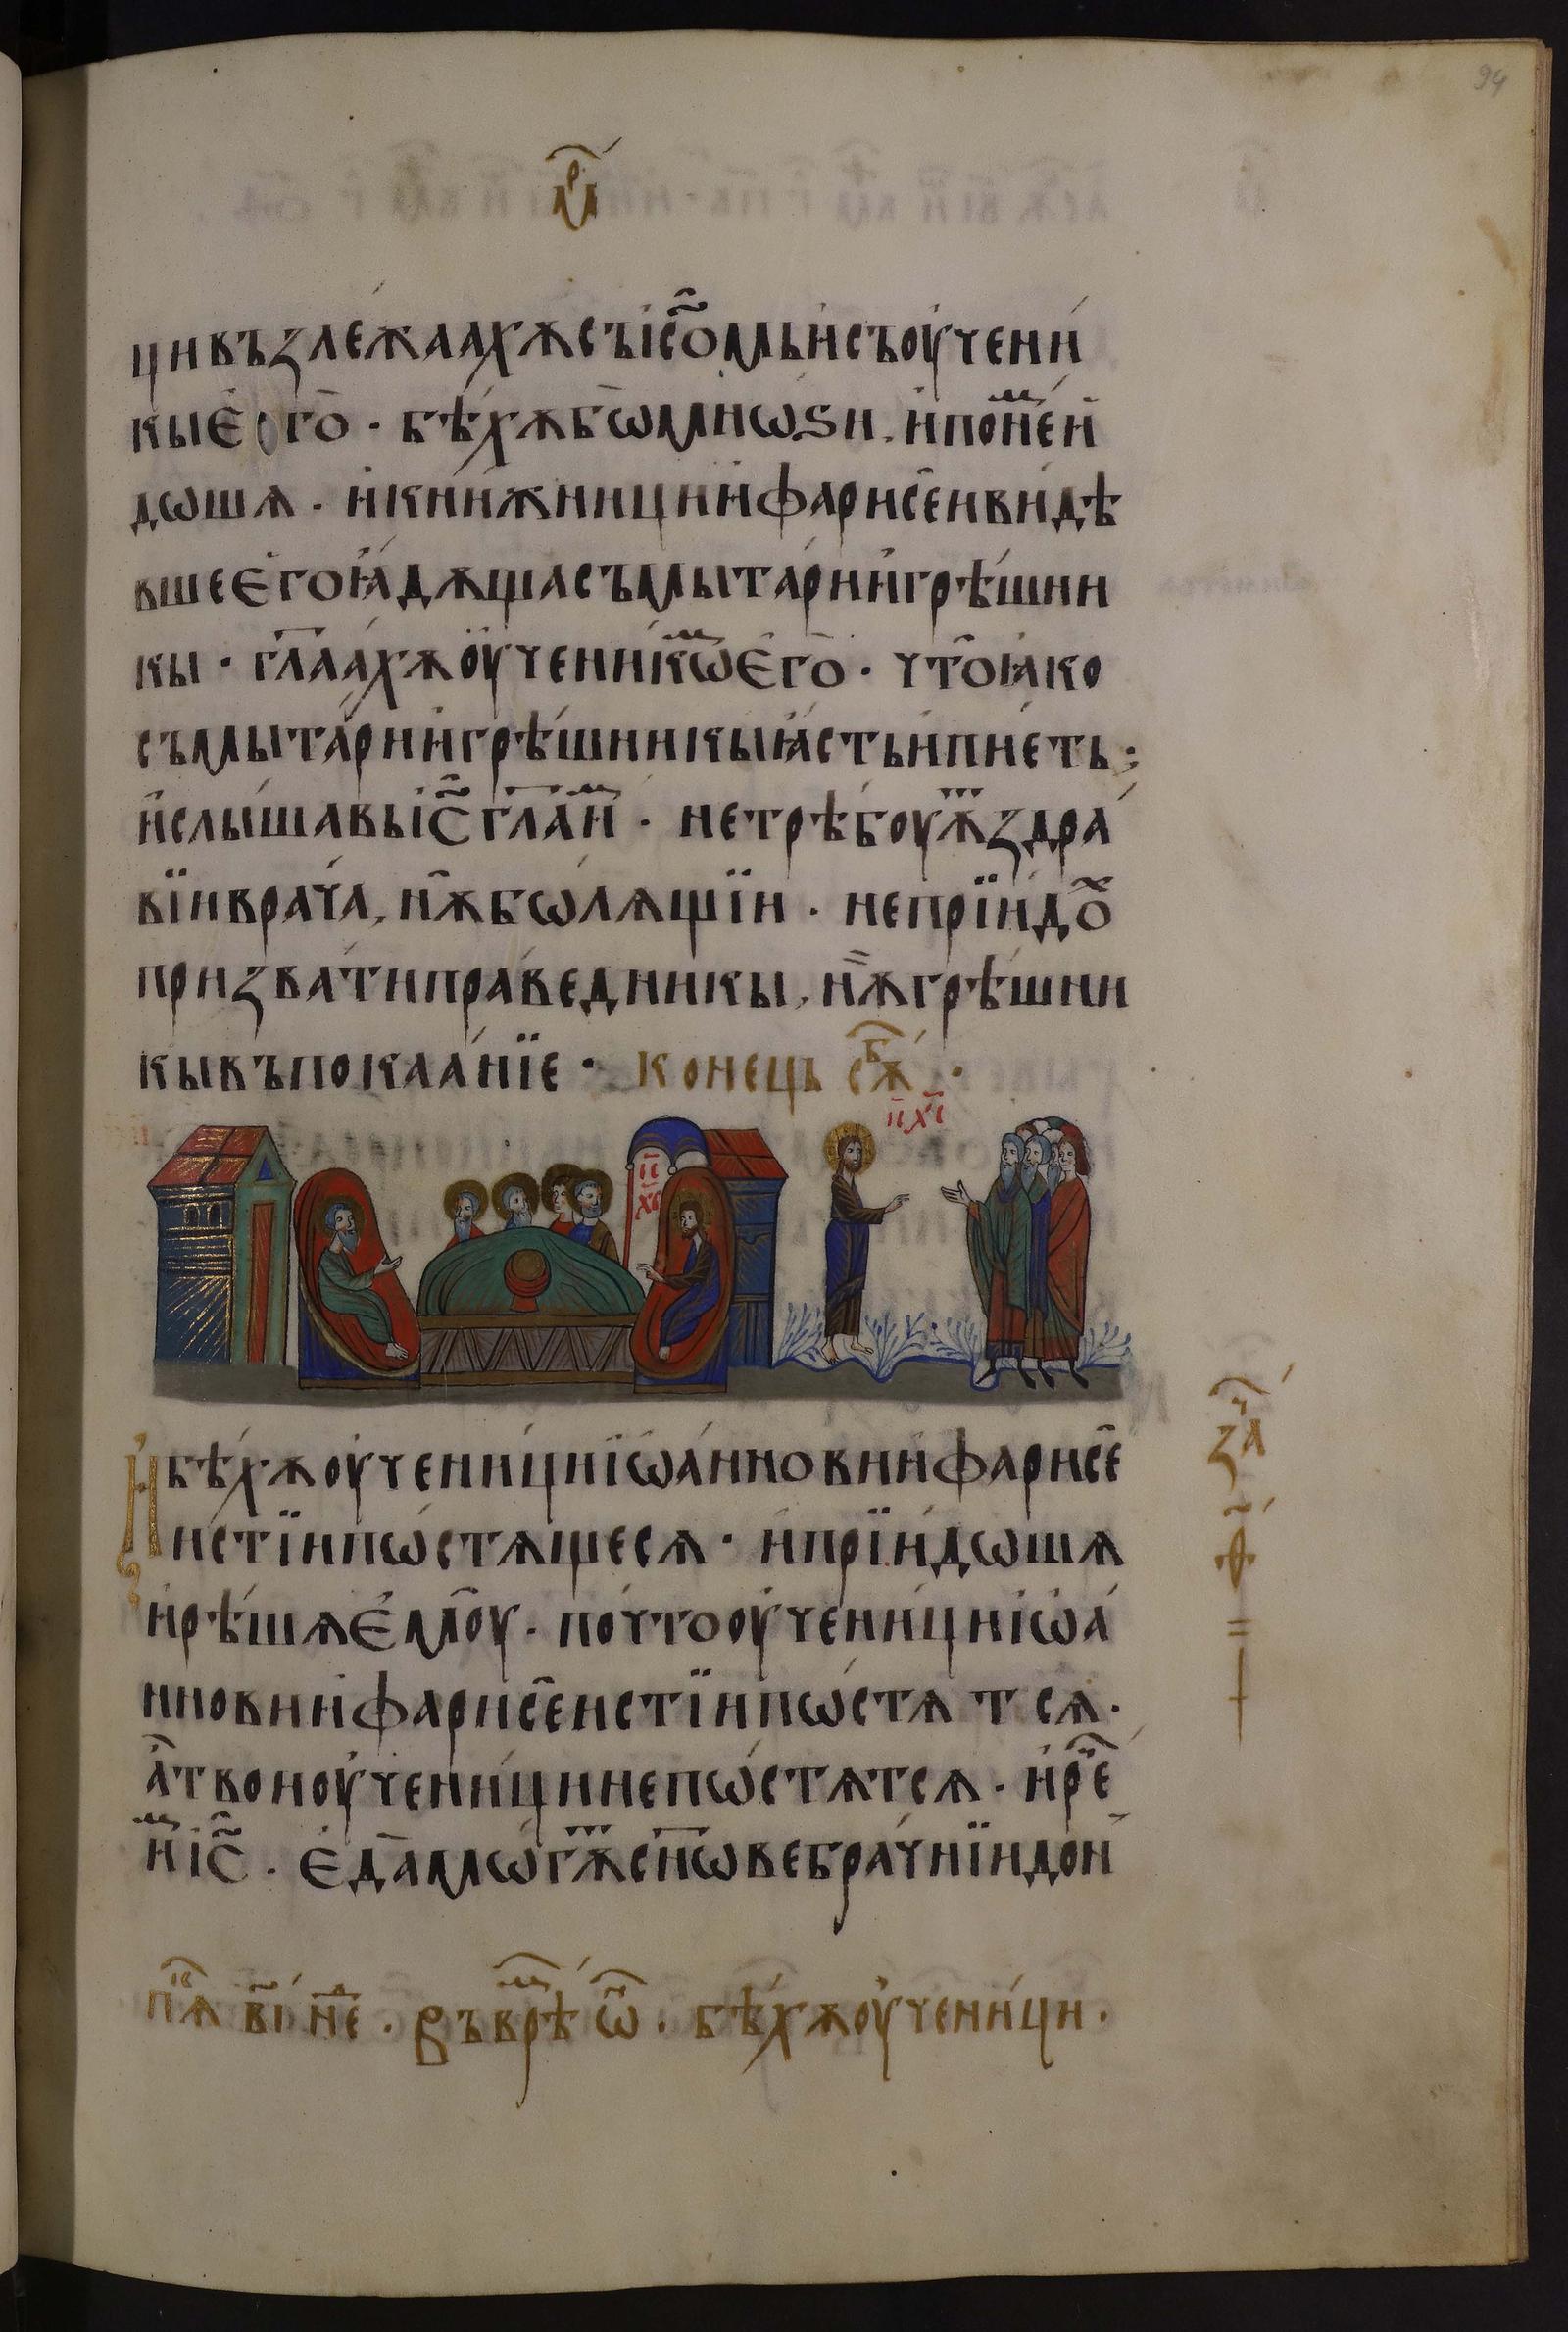 94
ци възлежаахѫ съ і҃с҃омь и съ оучени
кы его҃ · бѣхѫ бѡ мнѡѕи . и по нем̾ и
дѡшѧ · и книжници и фарисеи видѣ
вше его ꙗдѫща съ мытари и грѣшни
кы · гл҃аахѫ оученикѡⷨ его҃ · что ꙗко
съ мытари и грѣшникы ꙗсть и пиеть ·
и слышавь і҃с҃ гл҃а иⷨ · не трѣбоуѫⷮ здра
вїи врача, нѫ бѡлѧщїи · не прїидоⷯ
призвати праведникы, нѫ грѣшни
кы въ покаанїе · конець сѫⷠ ·
і҃с х҃с
і҃с х҃с
И бѣхѫ оученици іѡаннови и фарисе
истїи пѡстѧще сѧ · и прїидѡшѧ
и рѣшѧ емоу · по что оученици іѡа
ннови и фарисеистїи пѡстѧт сѧ ·
а твои оученици не пѡстѧт сѧ · и реⷱ
иⷨ і҃с҃ · еда мѡгѫⷮ сн҃ѡве брачнїи дон
заⷱ
пѧⷦ в҃і не҃ · въ врѣⷨ ѡ҃ · бѣхѫ оученици ·